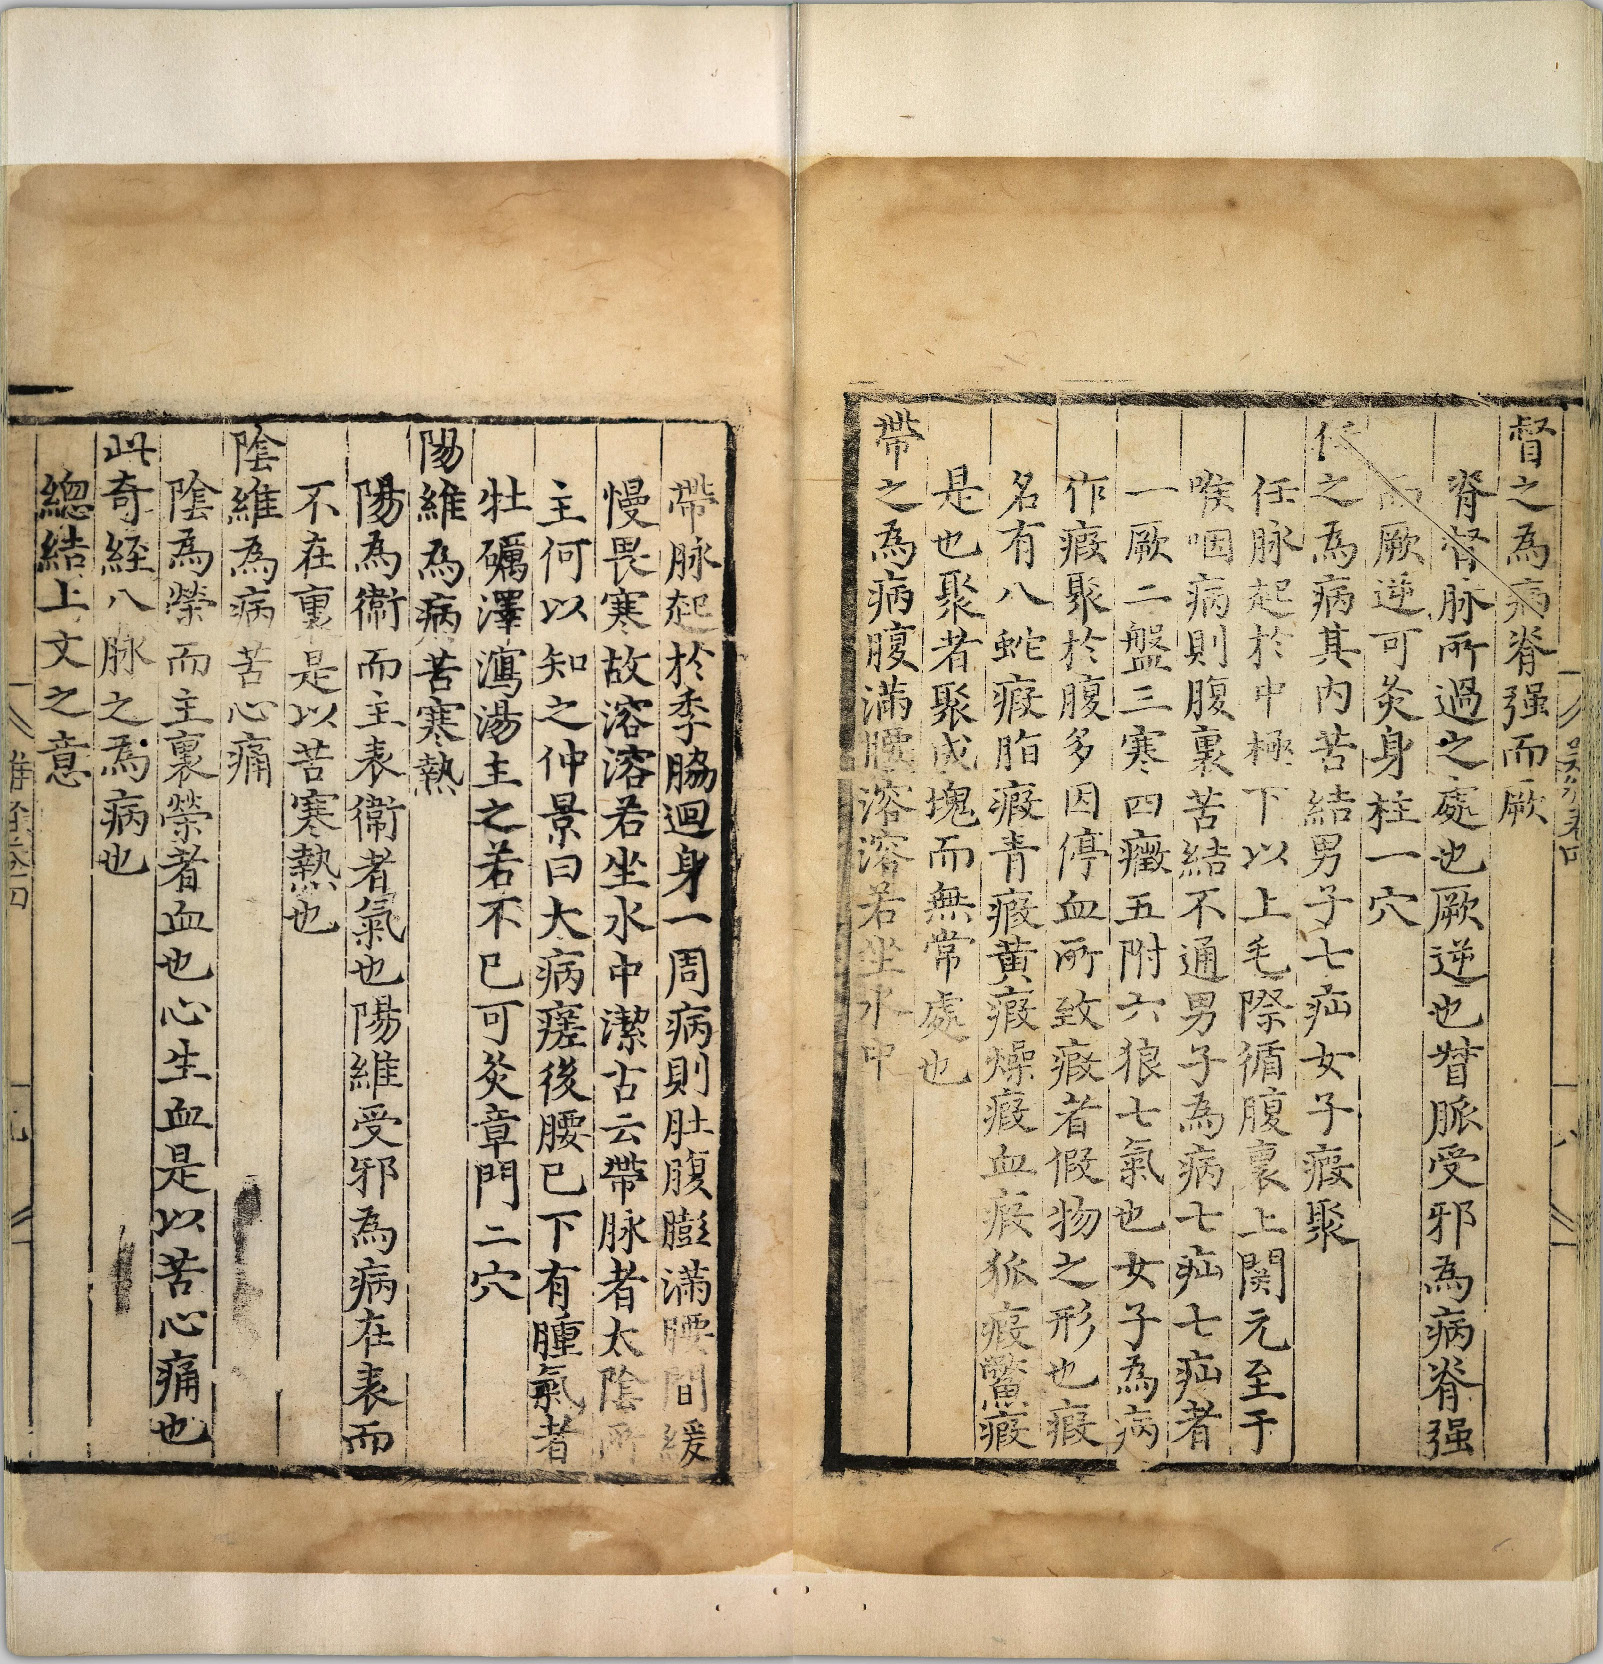 督之為病脊强而厥
脊督脉所過之處也厥逆也督脈受邪為病脊强
而厥逆可灸身柱一穴
任之為病其内苦結男子七疝女子瘕聚
任脉起於中極下以上毛際循腹裏上関元至于
喉咽病則腹裏苦結不通男子為病七疝七疝者
一厥二盤三寒四癥五附六狼七氣也女子為病
作瘕聚於腹多因停血所致瘕者假物之形也瘕
名有八蛇瘕脂瘕青瘕黄瘕燥瘕血瘕狐瘕鱉瘕
是也聚者聚成塊而無常處也
帶之為病腹滿腰溶溶若坐水中
帶脉起於季脇迴身一周病則肚腹膨滿腰間緩
慢畏寒故溶溶若坐水中潔古云帶脉者太陰所
主何以知之仲景曰大病瘥後腰已下有腫氣者
牡礪澤瀉湯主之若不已可灸章門二穴
陽維為病苦寒熱
陽為衞而主表衞者氣也陽維受邪為病在表而
不在裏是以苦寒熱也
陰維為病苦心痛
陰為榮而主裏榮者血也心生血是以苦心痛也
此奇經八脉之為病也
總結上文之意